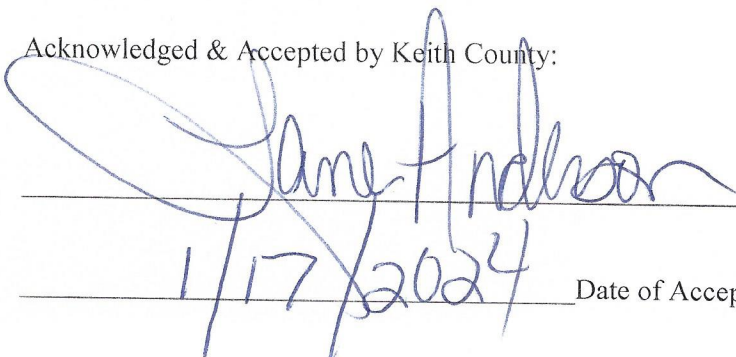 Acknowledged & Accepted by Keith County:
Jane Anderson
1/17/2024 Date of Accep